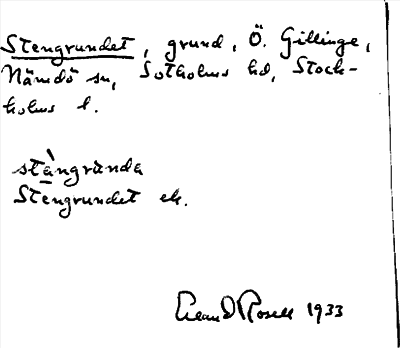 Stengrundet, grund, Ö. Gillinge,
Nämdö sn, Sotholms hd, Stock-
holms l.
stàngrànda
Stengrundet ek.
Rosell 1933